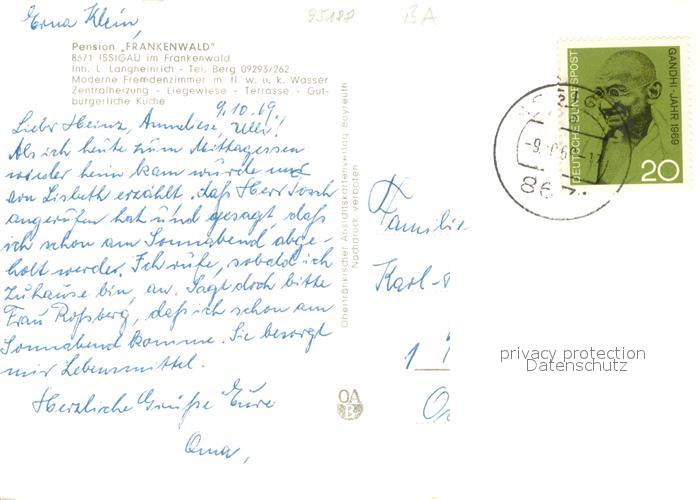 Erna Klein,
95187
BA
Pension „FRANKENWALD"
8671 ISSIGAU im Frankenwald
Inh. L. Langheinrich - Tel. Berg 09293/262
Moderne Fremdenzimmer m. fl. w. u. k. Wasser
Zentralheizung - Liegewiese - Terrasse - Gut-
bürgerliche Küche
9.10.69.
Liebe Heinz, Anneliese, Ulli!
Als ich heute zum Mittagessen
wieder heim kam wurde mir
von Lisbeth erzählt, daß Herr
angerufen hat und gesagt, daß
ich schon am Sonnabend abge-
holt werde. Ich rufe, sobald ich
Zuhause bin, an. Sagt doch bitte
Frau Roßberg, daß ich schon am
Sonnabend komme. Sie besorgt
mir Lebensmittel.
Herzliche Grüße Eure
Oma,
Oberfränkischer Ansichtskartenverlag Bayreuth
Nachdruck verboten
OA
B
Familie
Karl-
1
DEUTSCHE BUNDESPOST
GANDHI-JAHR 1969
20
867
privacy protection
Datenschutz